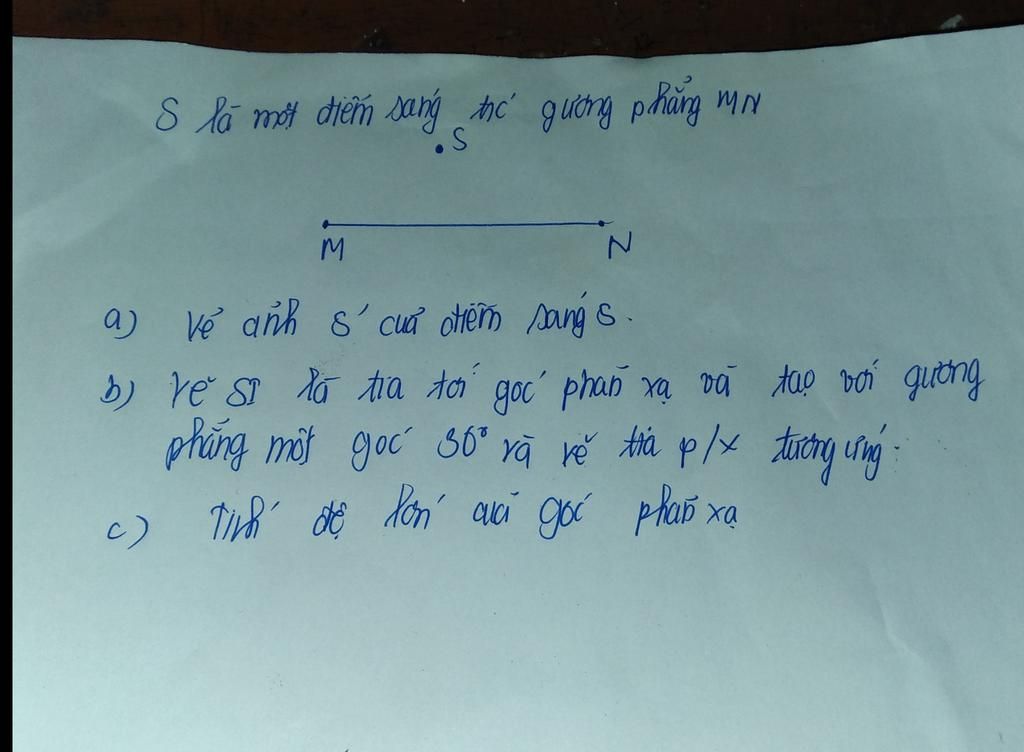 S là một điểm sáng trc gương phẳng MN
S
M N
a) Vẽ ảnh S' của điểm sáng S.
b) Vẽ SI là tia tới góc phản xạ và tạo với gương
phẳng một góc 30° và vẽ tia p/x tương ứng.
c) Tính độ lớn của góc phản xạ